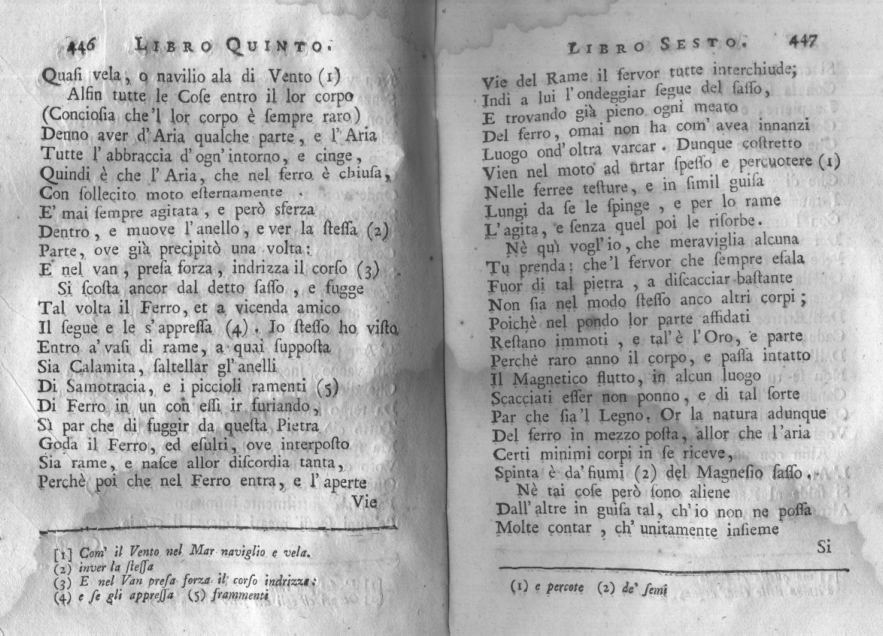 446 LIBRO QUINTO.
Quaſi vela, o navilio ala di Vento (1)
Alfin tutte le Coſe entro il lor corpo
(Concioſia che'l lor corpo è ſempre raro)
Denno aver d'Aria qualche parte, e l'Aria
Tutte l'abbraccia d'ogn'intorno, e cinge,
Quindi è che l'Aria, che nel ferro è chiuſa,
Con ſollecito moto eſternamente
E' mai ſempre agitata, e però sferza
Dentro, e muove l'anello, e ver la ſteſſa (2)
Parte, ove già precipitò una volta:
E nel van, preſa forza, indrizza il corſo (3)
Si ſcoſta ancor dal detto ſaſſo, e fugge
Tal volta il Ferro, et a vicenda amico
Il ſegue e le s'appreſſa (4). Io ſteſſo ho viſto
Entro a' vaſi di rame, a quai ſuppoſta
Sia Calamita, ſaltellar gl'anelli
Di Samotracia, e i piccioli ramenti (5)
Di Ferro in un con eſſi ir furiando,
Sì par che di fuggir da queſta Pietra
Goda il Ferro, ed eſulti, ove interpoſto
Sia rame, e naſce allor diſcordia tanta,
Perchè poi che nel Ferro entra, e l'aperte
Vie
[1] Com' il Vento nel Mar naviglio e vela.
(2) inver la ſteſſa
(3) E nel Van preſa forza il corſo indrizza:
(4) e ſe gli appreſſa (5) frammenti
LIBRO SESTO. 447
Vie del Rame il fervor tutte interchiude;
Indi a lui l'ondeggiar ſegue del ſaſſo,
E trovando già pieno ogni meato
Del ferro, omai non ha com' avea innanzi
Luogo ond'oltra varcar. Dunque coſtretto
Vien nel moto ad urtar ſpeſſo e percuotere (1)
Nelle ferree teſture, e in ſimil guiſa
Lungi da ſe le ſpinge, e per lo rame
L'agita, e ſenza quel poi le riſorbe.
Nè quì vogl'io, che meraviglia alcuna
Tu prenda: che'l fervor che ſempre eſala
Fuor di tal pietra, a diſcacciar baſtante
Non ſia nel modo ſteſſo anco altri corpi;
Poichè nel pondo lor parte affidati
Reſtano immoti, e tal'è l'Oro, e parte
Perchè raro anno il corpo, e paſſa intatto
Il Magnetico flutto, in alcun luogo
Scacciati eſſer non ponno, e di tal ſorte
Par che ſia'l Legno. Or la natura adunque
Del ferro in mezzo poſta, allor che l'aria
Certi minimi corpi in ſe riceve,
Spinta è da' fiumi (2) del Magneſio ſaſſo.
Nè tai coſe però ſono aliene
Dall'altre in guiſa tal, ch'io non ne poſſa
Molte contar, ch'unitamente inſieme
Si
(1) e percote (2) de' ſemi